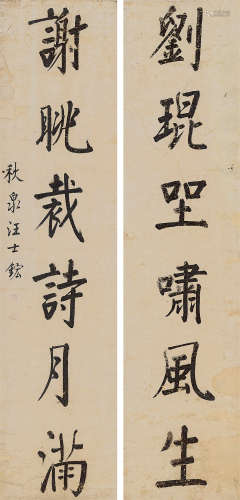 劉琨坐嘯風生
謝朓裁詩月滿
秋泉汪士鋐